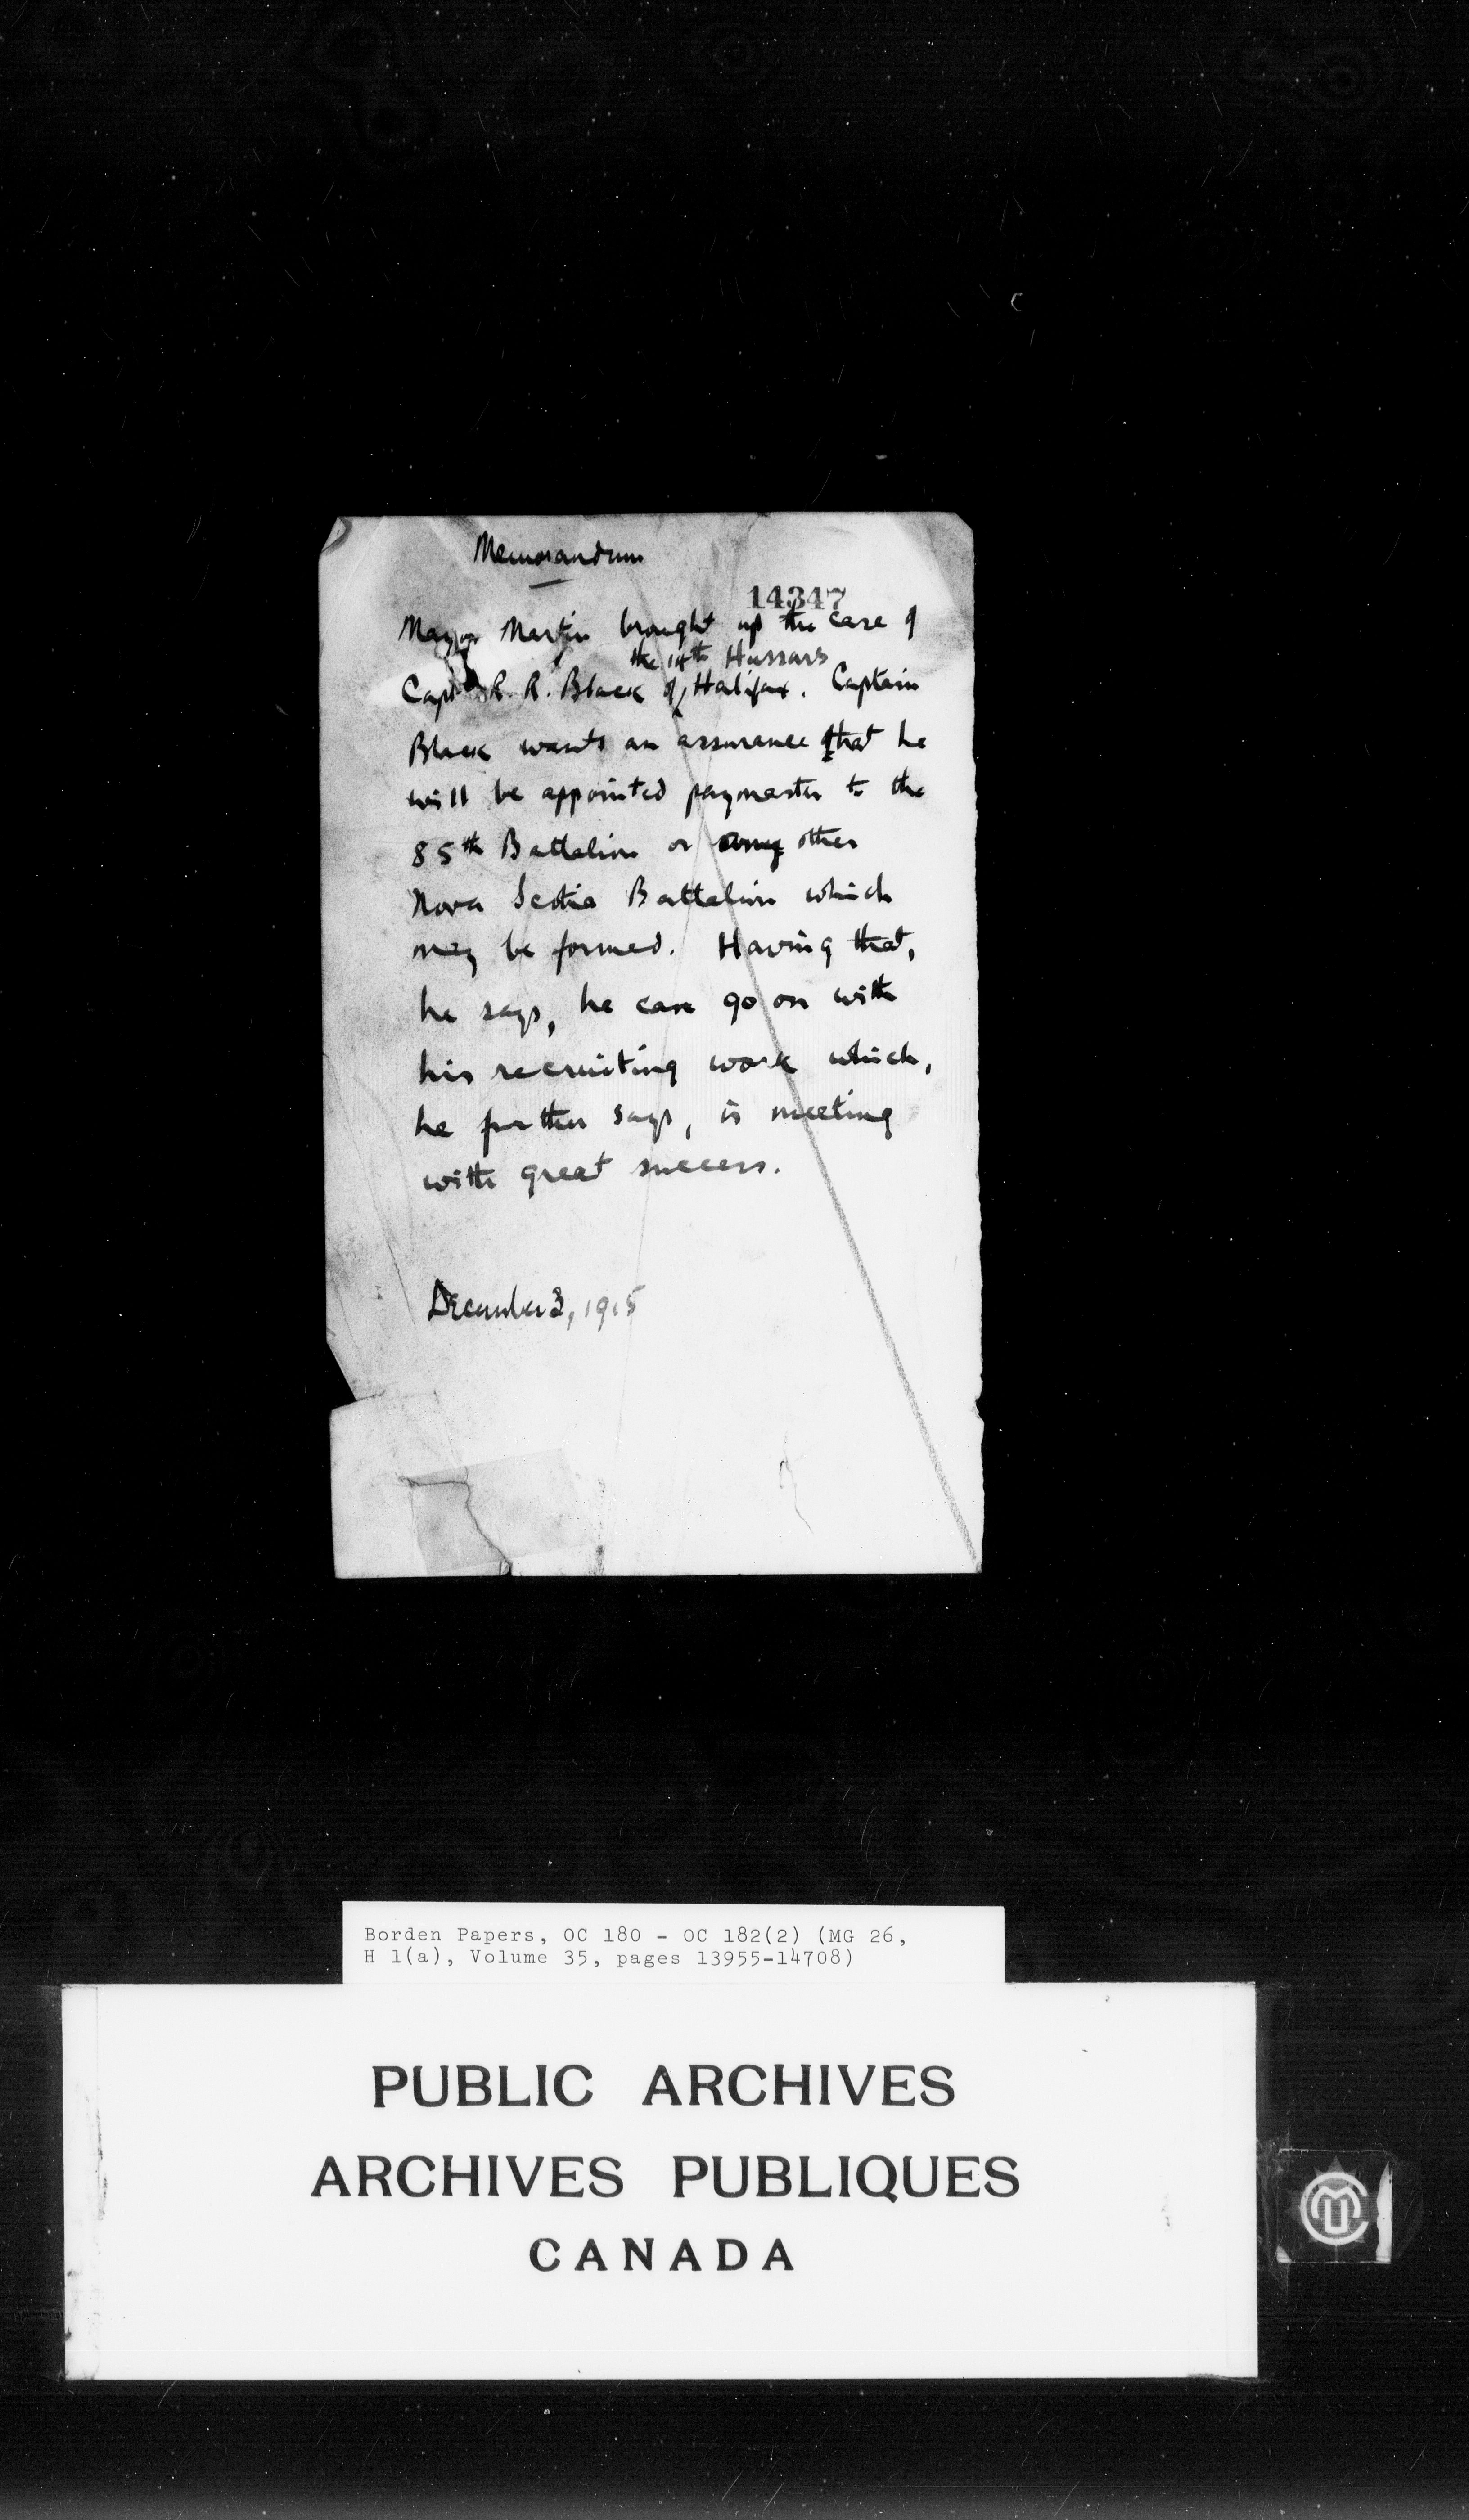 Memorandum
14347
Mayor Martin brought up the case of
the 14th Hussars
Capt R. R. Black of Halifax. Captain
Black wants an assurance that he
will be appointed paymaster to the
85th Battalion or any other
Nova Scotia Battalion which
may be formed. Having that,
he says, he can go on with
his recruiting work which,
he further says, is meeting
with great success.
December 3, 1915
Borden Papers, OC 180 - OC 182(2) (MG 26,
H 1(a), Volume 35, pages 13955-14708)
PUBLIC ARCHIVES
ARCHIVES PUBLIQUES
CANADA